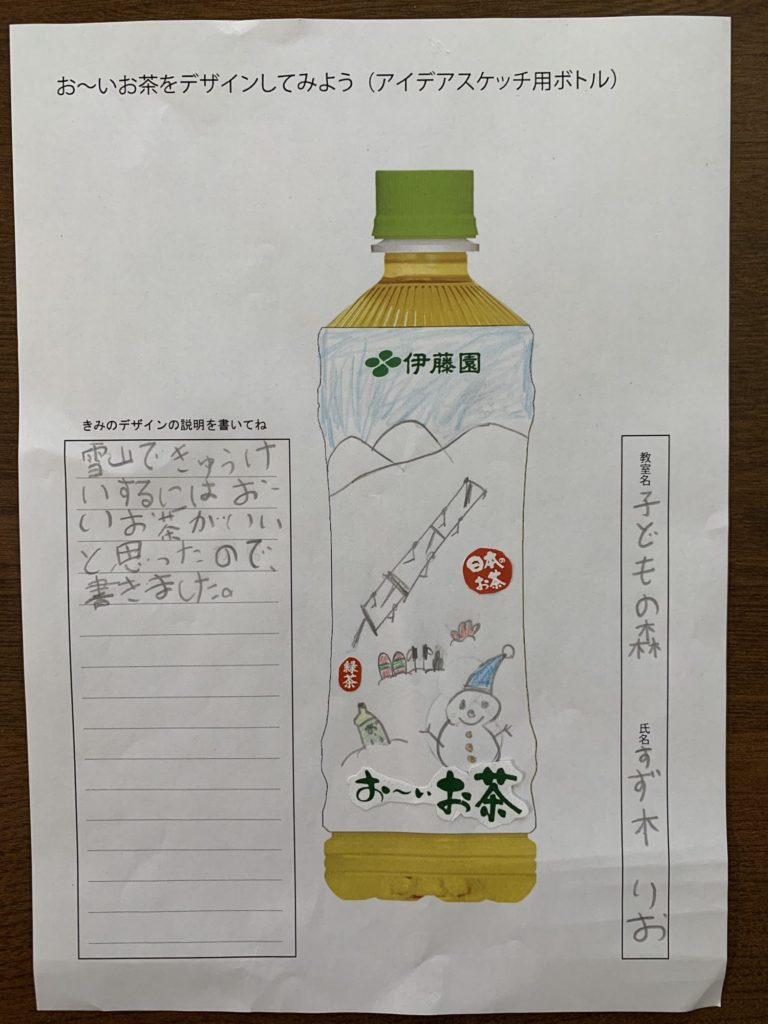 お～いお茶をデザインしてみよう（アイデアスケッチ用ボトル）
伊藤園
きみのデザインの説明を書いてね
雪山できゅうけ
いするにはおー
いお茶がいい
と思ったので、
書きました。
日本の
お茶
緑茶
お～いお茶
教室名
子どもの森
氏名
すず木 りお